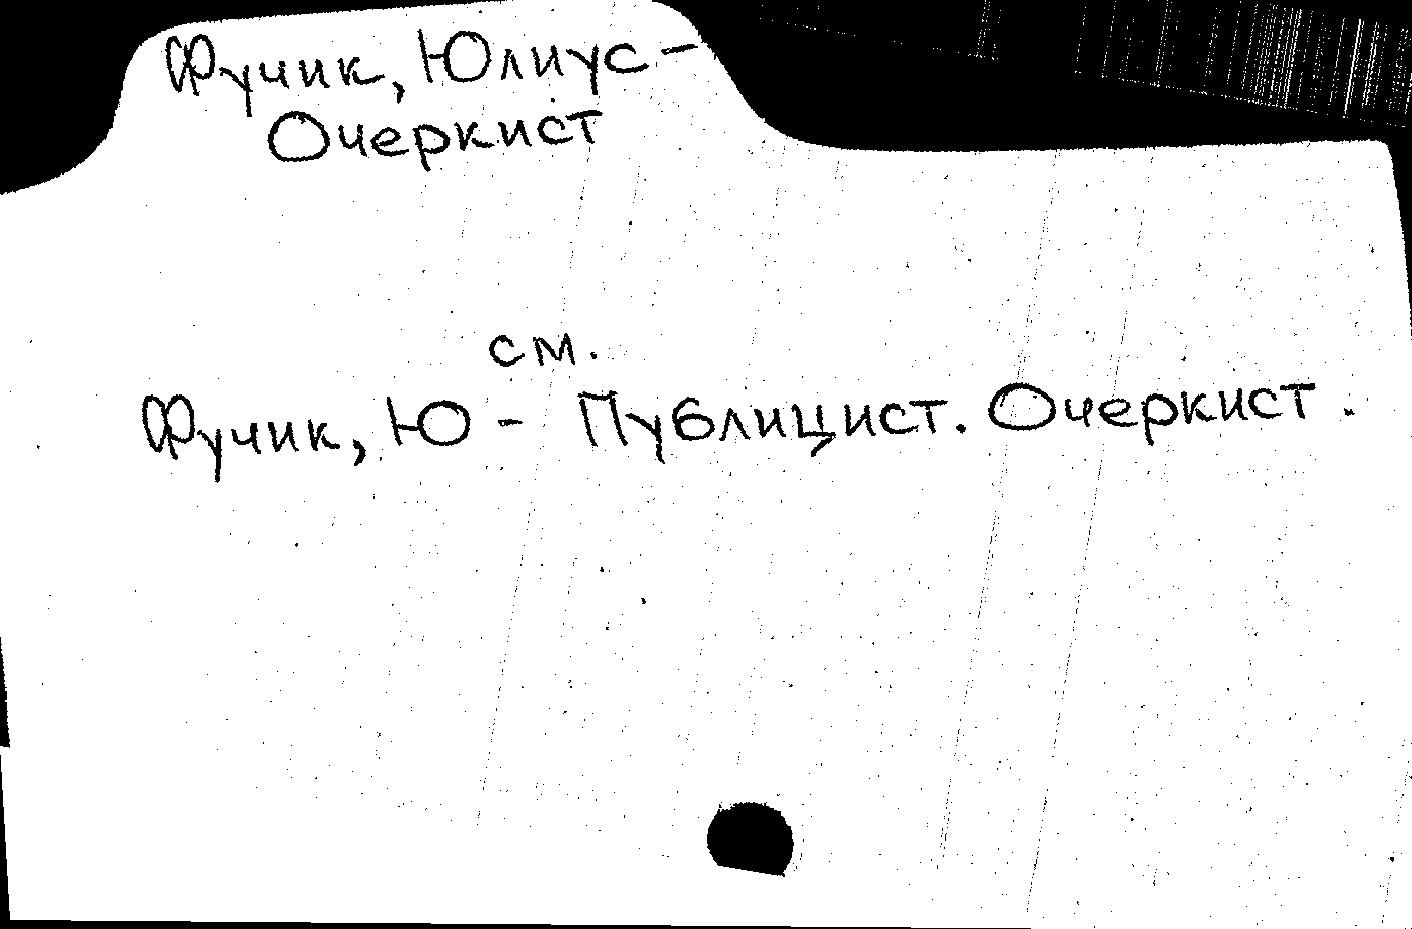 Фучик, Юлиус -
Очеркист
см.
Фучик, Ю - Публицист. Очеркист.